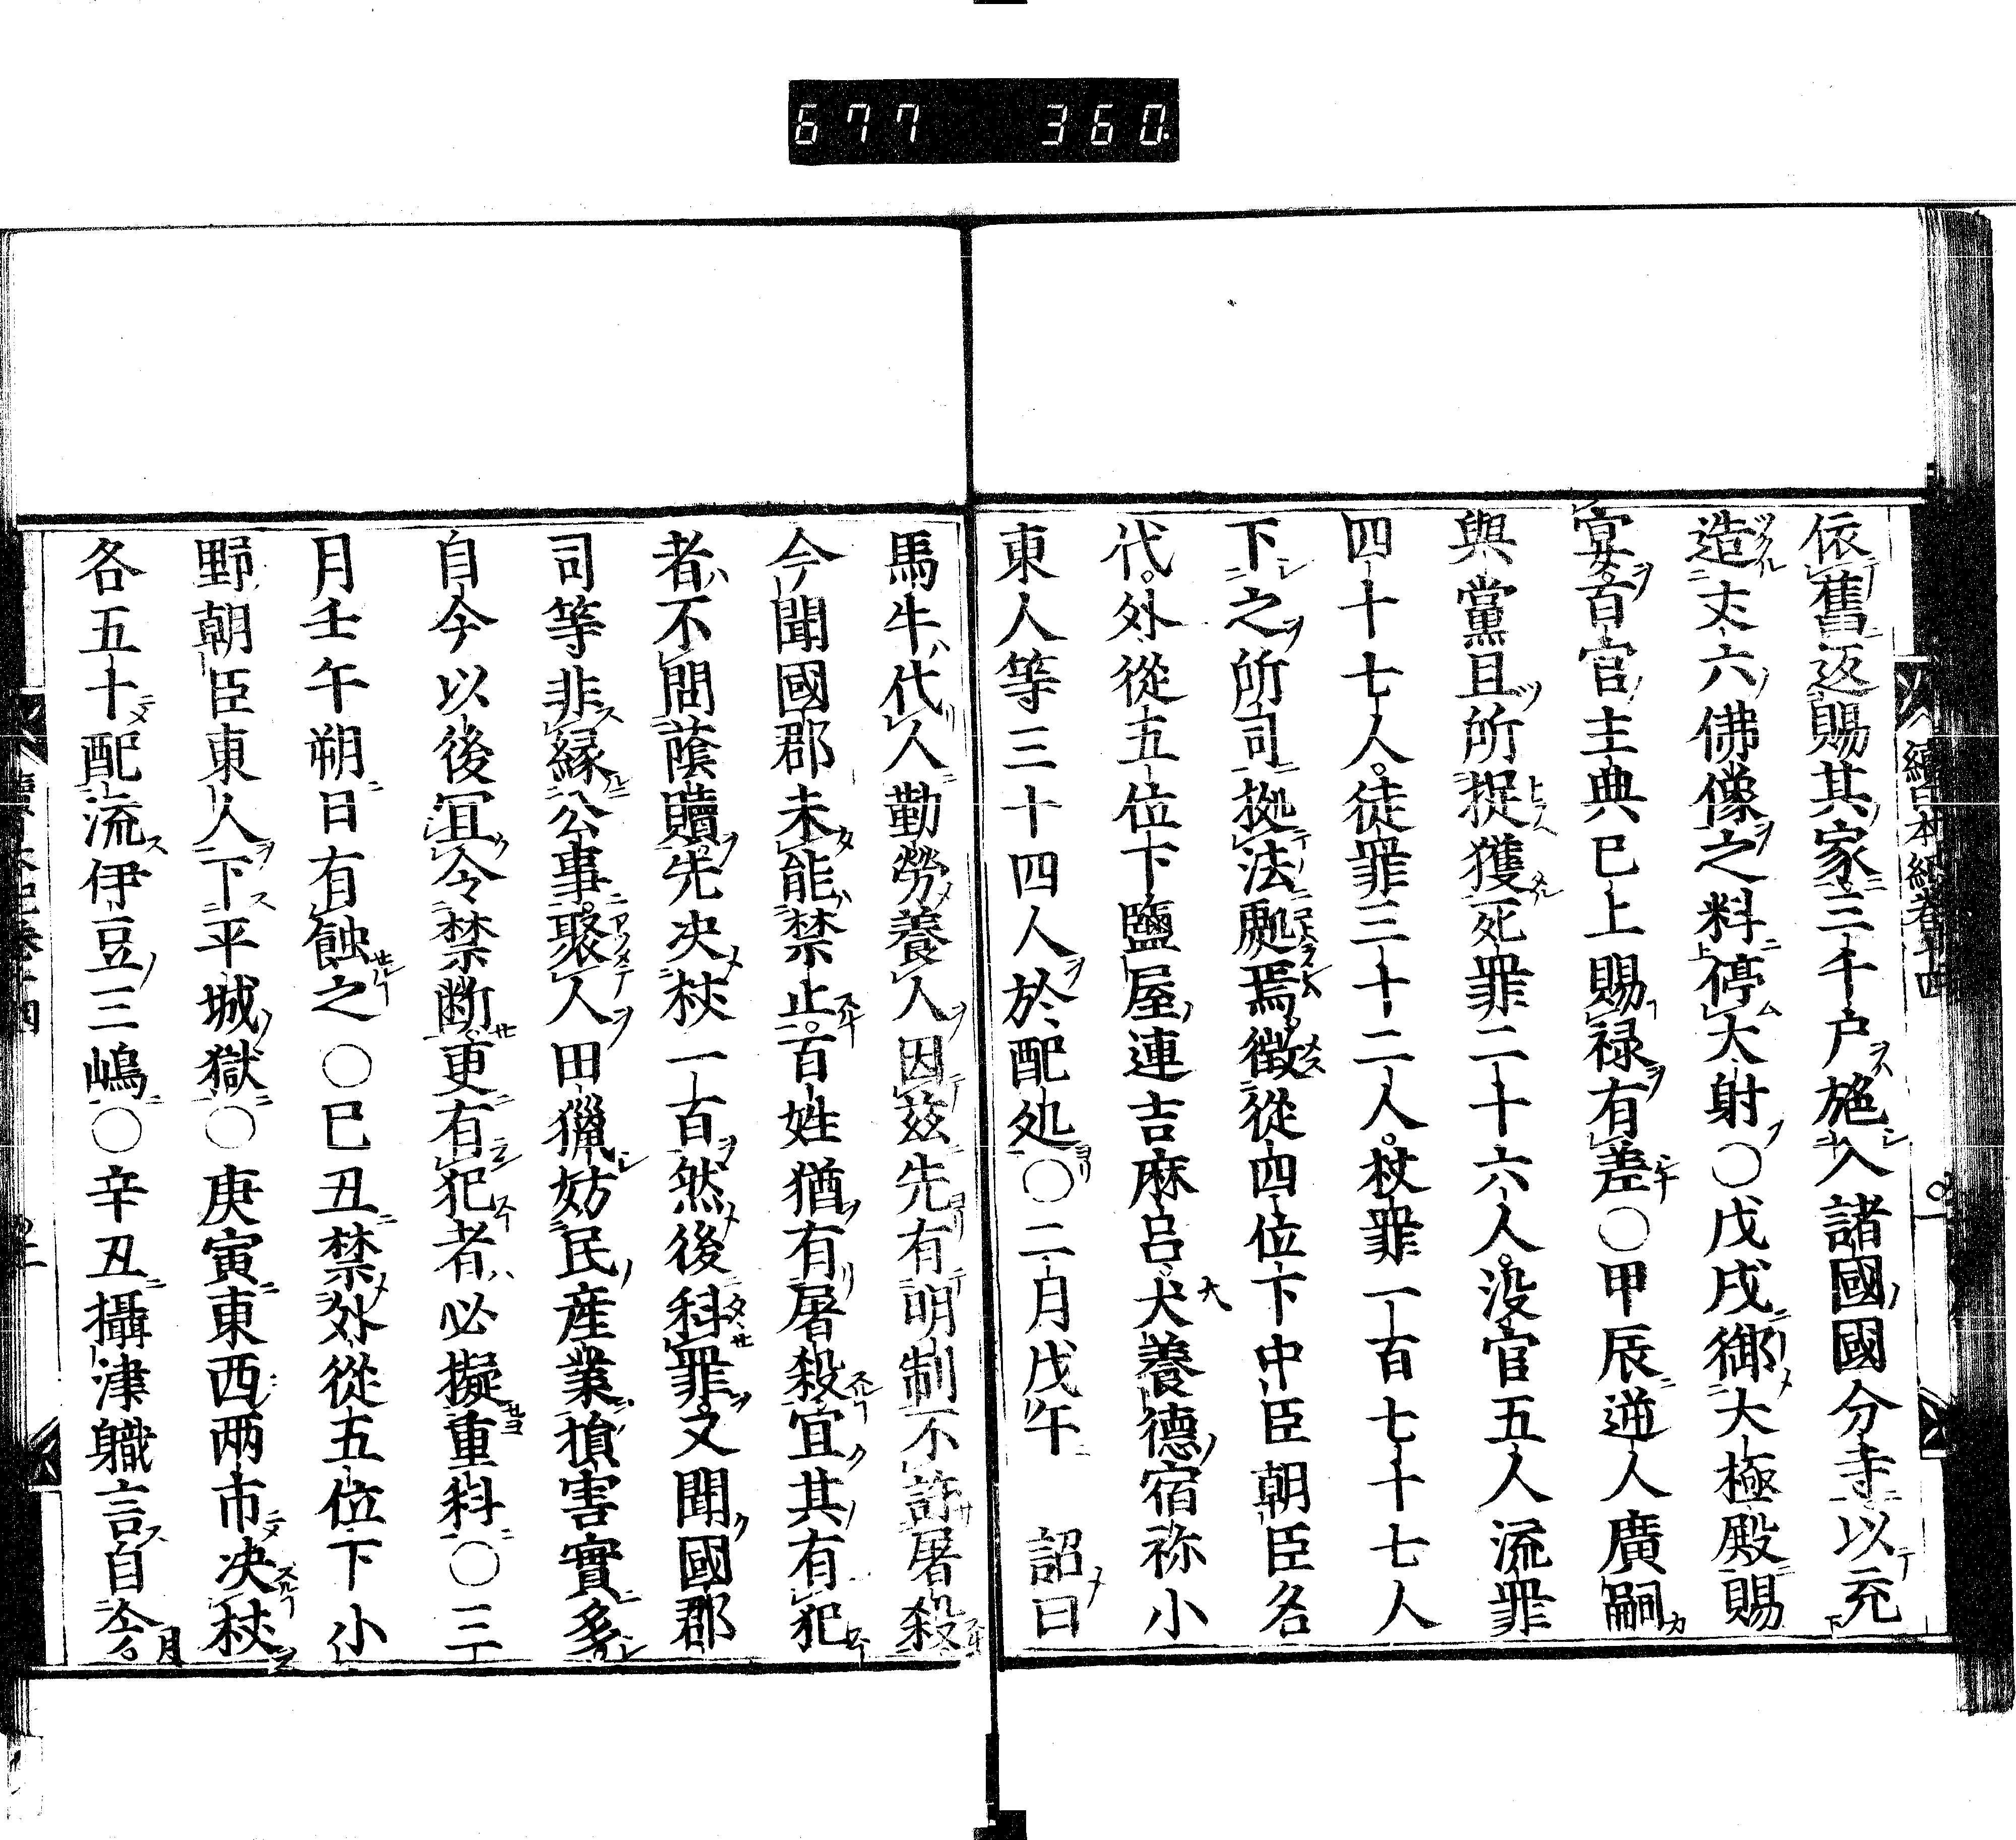 677 360
依舊返賜其家三千戸施入諸國國分寺以充
造丈六佛像之料停大射○戊戌御大極殿賜
宴百官主典已上賜禄有差○甲辰逆人廣嗣
與黨且所捉獲死罪二十六人没官五人流罪
四十七人徒罪三十二人杖罪一百七十七人
下之所司拠法處焉徴從四位下中臣朝臣名
代外從五位下鹽屋連吉麻呂犬養德宿祢小
東人等三十四人於配処○二月戊午 詔曰
馬牛代人勤勞養人因茲先有明制不許屠殺
今聞國郡未能禁止百姓猶有屠殺宜其有犯
者不問蔭贖先決杖一百然後科罪又聞國郡
司等非縁公事聚人田獵妨民産業損害實多
自今以後冝令禁断更有犯者必擬重科○三
月壬午朔日有蝕之○巳丑禁外從五位下小
野朝臣東人下平城獄○庚寅東西兩市決杖
各五十配流伊豆三嶋○辛丑攝津職言自今
月